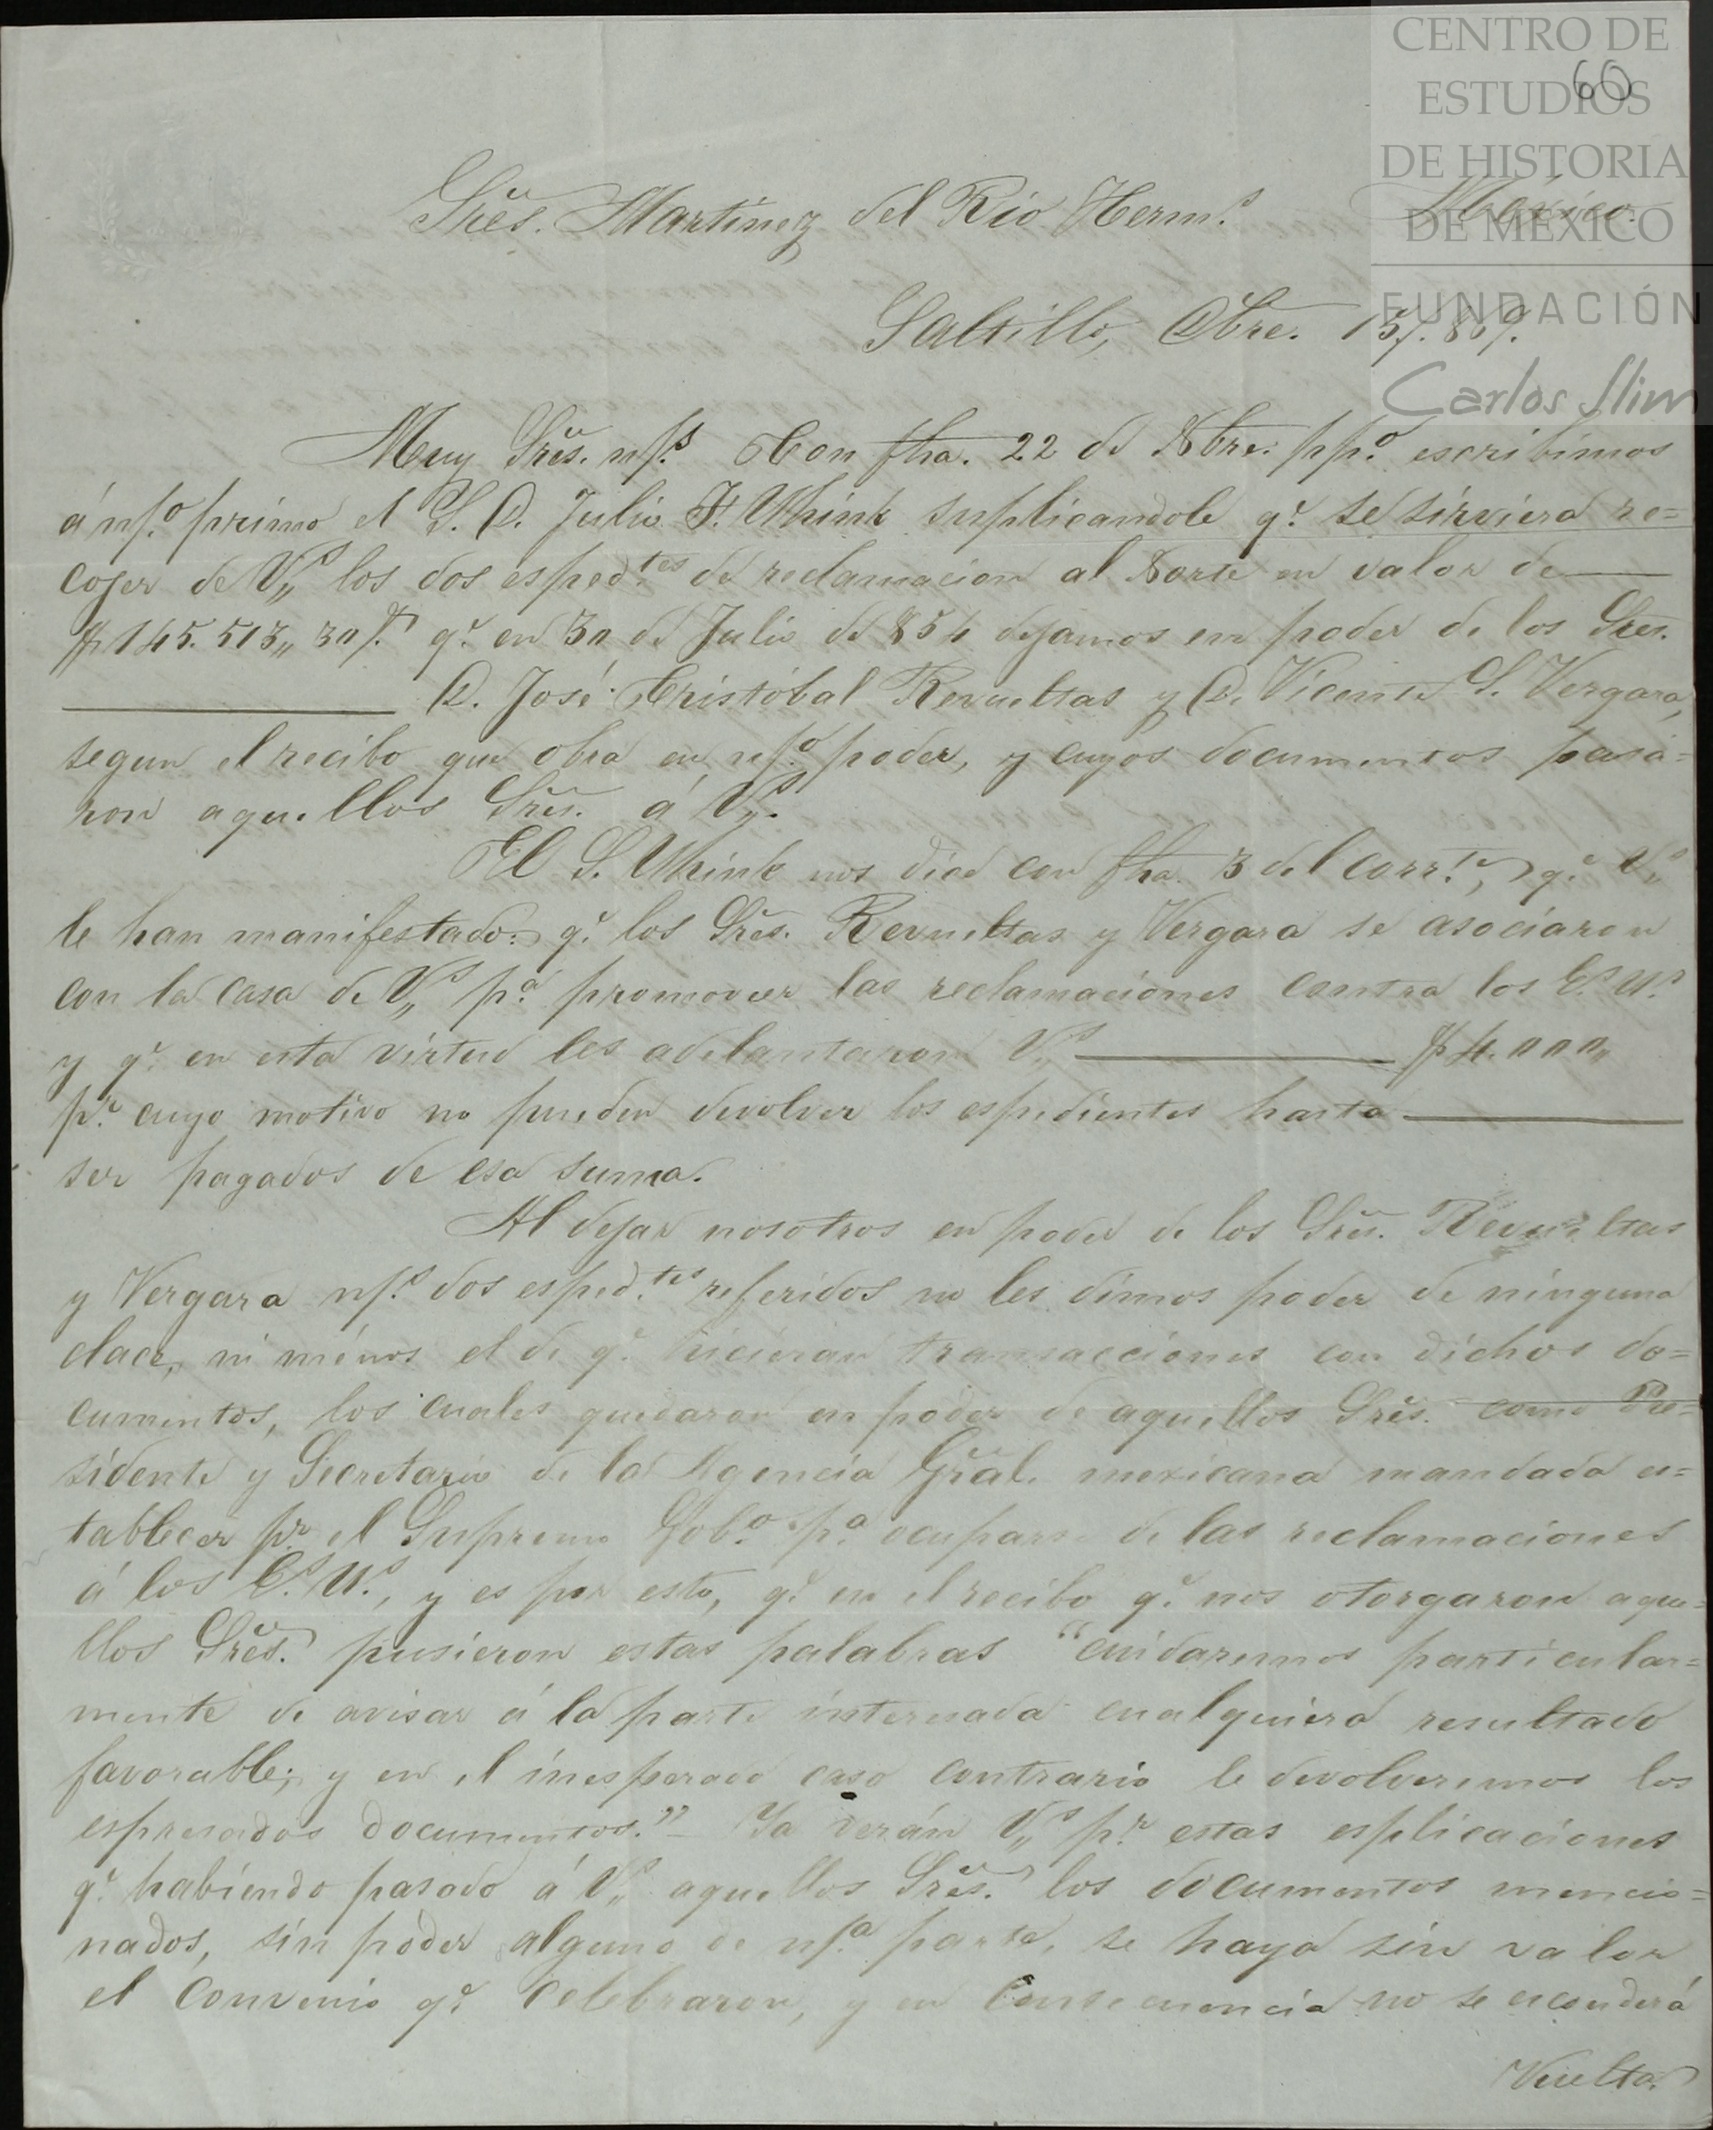 CENTRO DE
ESTUDIOS
DE HISTORIA
DE MÉXICO
FUNDACIÓN
Carlos Slim
60
Sres. Martinez del Rio Herms. México.
Saltillo, Dbre. 15/.869.
Muy Sres. nss. Con fha. 22 de Nbre. ppo. escribimos
á nso. primo el S. D. Julio F. Uhink suplicandole qe. se sirviera re=
cojer de Vs. los dos espedtes. de reclamacion al Norte en valor de
$145.513,, 30 qe. en 30 de Julio de 854 dejamos en poder de los Sres.
D. José Cristóbal Revueltas y D. Vicente S. Vergara,
segun el recibo que obra en nso. poder, y cuyos documentos pasa=
ron aquellos Sres. á Vs.
El S. Uhink nos dice con fha. 3 del corrte., qe. Vs.
le han manifestado: qe. los Sres. Revueltas y Vergara se asociaron
con la casa de Vs. pa. promover las reclamaciones contra los Es. Us.
y qe. en esta virtud les adelantaron Vs. $4.000,,
pr. cuyo motivo no pueden devolver los espedientes hasta
ser pagados de esa suma.
Al dejar nosotros en poder de los Sres. Revueltas
y Vergara nss. dos espedtes. referidos no les dimos poder de ninguna
clace, ni ménos el de qe. hicieran transacciones con dichos do=
cumentos, los cuales quedaron en poder de aquellos Sres. como Pre=
sidente y Secretario de la Agencia Gral. mexicana mandada es=
tablecer pr. el Supremo Gobo. pa. ocuparse de las reclamaciones
á los Es. Us., y es por esto, qe. en el recibo qe. nos otorgaron aque=
llos Sres. pusieron estas palabras "cuidaremos particular=
mente de avisar á la parte interesada cualquiera resultado
favorable; y en el inesperado caso contrario le devolveremos los
espresados documentos."_ Ya verán Vs. pr. estas esplicaciones
qe. habiendo pasado á Vs. aquellos Sres. los documentos mencio=
nados, sin poder alguno de nsa. parte, se haya sin valor
el convenio qe. celebraron, y en consecuencia no se esconderá
Vuelta.